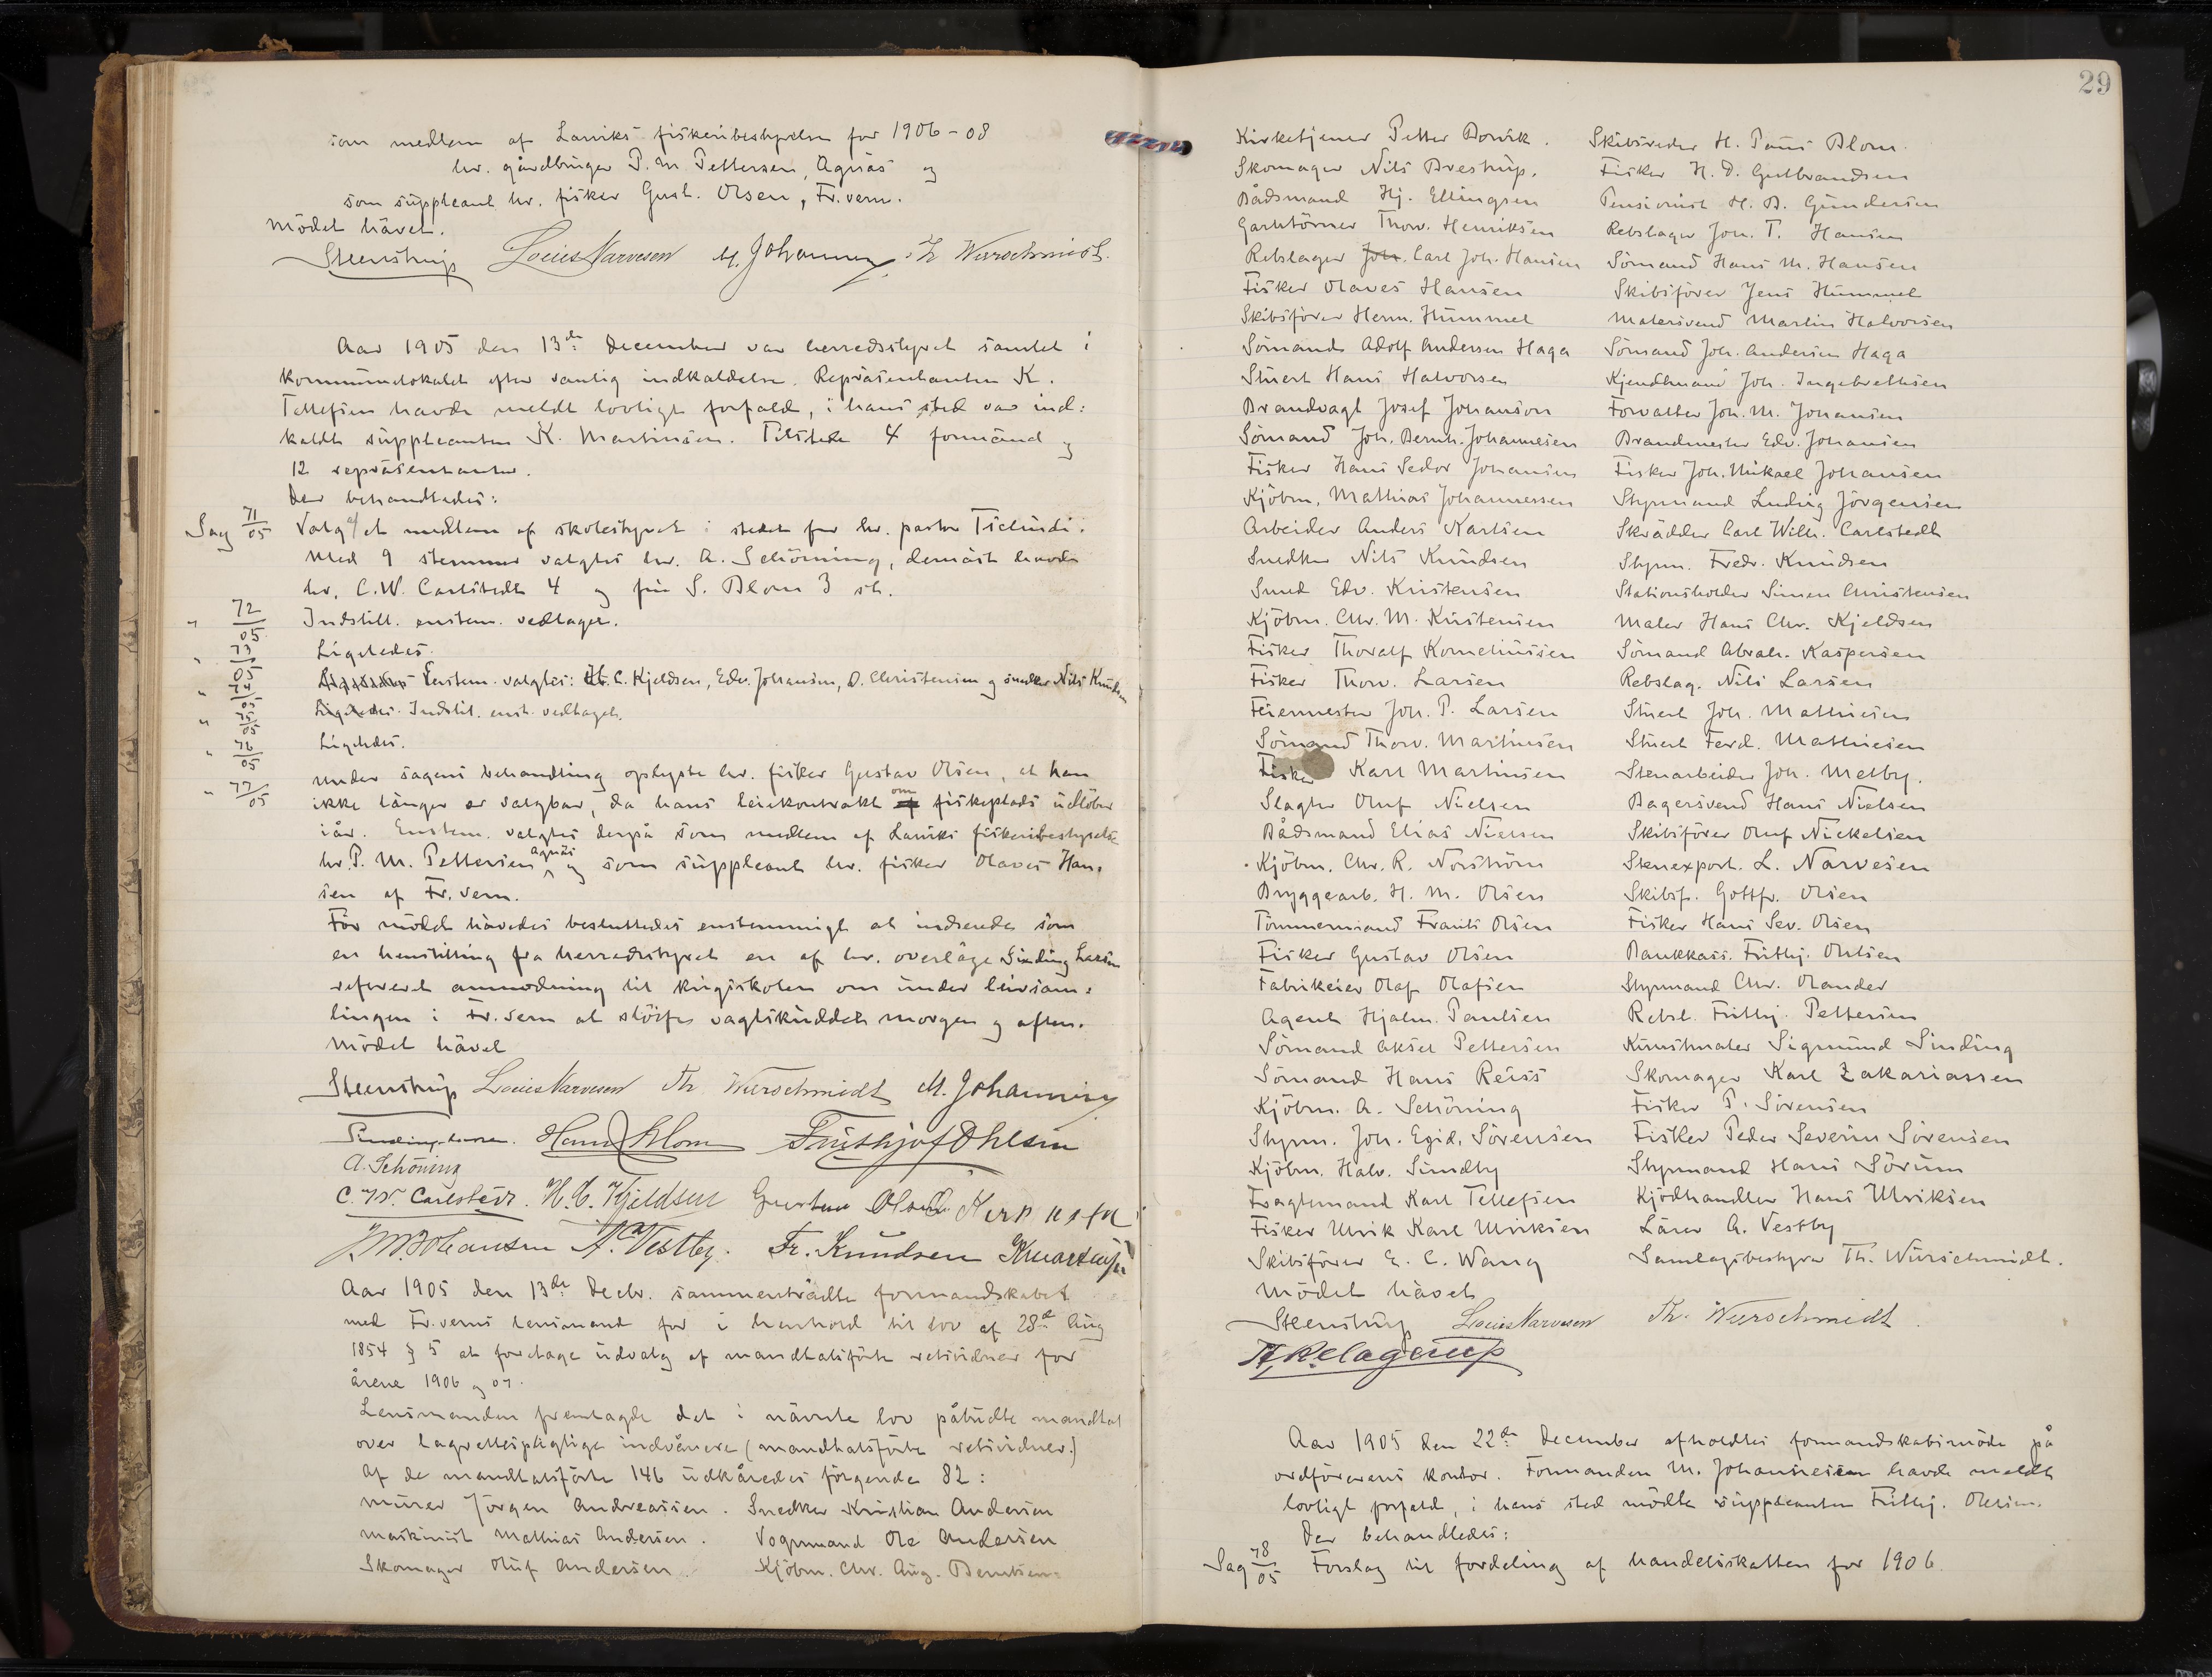 som medlem af Larviks fiskeribestyrelse for 1906-08
hr. gårdbruger P. M. Pettersen, Agnäs og
som suppleant hr. fisker Gust. Olsen, Fr.vern.
Mödet hävet.
Steenstrup Louis Narvesen M. Johannesen Th Würschmidt.
Aar 1905 den 13de December var herredsstyret samlet i
Kommunelokalet efter vanlig indkaldelse. Repräsentanten K.
Tellefsen havde meldt lovligt forfald, i hans sted var ind:
kaldt suppleanten K. Martinsen. Tilstede 4 formänd og
12 repräsentanter.
Der behandledes:
Sag 71/05 Valg af et medlem af skolestyret i stedet for hr. pastor
Med 9 stemmer valgtes hr. A. Schöning, dernäst havde
hr. C. W. Carlstedt 4 og fru S. Blom 3 st.
" 72/05 Indstill. enstem. vedtaget.
" 73/05 Ligeledes.
" 74/05 Enstem. valgtes: H. C. Kjeldsen, Edv. Johansen, O. Christensen og snedker Nils Knudsen
" 75/05 Ligeledes. Indstil. enst. vedtaget.
" 76/05 Ligeledes.
" 77/05 Under sagens behandling oplyste hr. fisker Gustav Olsen, at han
ikke länger er valgbar, da hans leiekontrakt om fiskeplads udlöber
iår. Enstem. valgtes derpå som medlem af Larviks fiskeribestyrelse
hr. P. M. Pettersen Agnäs og som suppleant hr. fisker Olaves Han-
sen af Fr. vern.
För mödet hävedes besluttedes enstemmigt at indsende som
en henstilling fra herredsstyret en af hr. overläge Sinding Larsen
refereret anmodning til krigsskolen om under leirsam:
lingen i Fr.vern at slöife vagtskuddet morgen og aften.
Mödet hävet
Steenstrup Louis Narvesen Th Würschmidt M. Johannesen
Sinding-Larsen. Hans Blom Frithjof Ohlsen
A. Schöning
C. W. Carlstedt. H. C. Kjeldsen Gustav Olsen
J M Johansen A. Vestby. Fr. Knudsen K Martinsen
Aar 1905 den 13de Decbr. sammentrådte formandskabet
med Fr.verns lensmand for i henhold til lov af 28de Aug
1854 § 5 at foretage udvalg af mandtalsförte retsvidner for
årene 1906 og 07.
Lensmanden fremlagde det i nävnte lov påbudte mandtal
over lagrettespligtige indvånere (mandtalsförte retsvidner.)
Af de mandtalsförte 146 udkåredes fölgende 82:
Murer Jörgen Andreassen. Snedker Kristian Andersen
Maskinist Mathias Andersen. Vognmand Ole Andersen
Skomager Oluf Andersen. Kjöbm. Chr. Aug. Berntsen.
29
Kirketjener Petter Borvik. Skibsreder H. Paus Blom.
Skomager Nils Brestrup. Fisker H. D. Gulbrandsen
Bådsmand Hj. Ellingsen Pensionist H. B. Gundersen
Gartnörner Thorv. Henriksen Rebslager Joh. T. Hansen
Rebslager Joh. Carl Joh. Hansen Sömand Hans M. Hansen
Fisker Olaves Hansen Skibsförer Jens Hummel
Skibsförer Herm. Hummel Malersvend Martin Halvorsen
Sömand Adolf Andersen Haga Sömand Joh. Andersen Haga
Stuert Hans Halvorsen Kjendtmand Joh. Ingebrethsen
Brandvagt Josef Johanson Forvalter Joh. M. Johansen
Sömand Joh. Bernh. Johannesen Brandmester Edv. Johansen
Fisker Hans Sedor Johansen Fisker Joh. Mikael Johansen
Kjöbm. Mathias Johannessen Styrmand Ludvig Jörgensen
Arbeider Anders Karlsen Skrädder Carl Wilh. Carlstedt
Snedker Nils Knudsen Styrm. Fredr. Knudsen
Smed Edv. Kristensen Stationsholder Simen Christensen
Kjöbm. Chr. M. Kristensen Maler Hans Chr. Kjeldsen
Fisker Thoralf Korneliussen Sömand Abrah. Kaspersen
Fisker Thorv. Larsen Rebslag. Nils Larsen
Feiermester Joh. P. Larsen Stuert Joh. Mathiesen
Sömand Thorv. Martinsen Stuert Ferd. Mathiesen
Fisker Karl Martinsen Stenarbeider Joh. Melby.
Slagter Oluf Nielsen Bagersvend Hans Nielsen
Bådsmand Elias Nielsen Skibsförer Oluf Nickelsen
Kjöbm. Chr. R. Norström Stenexport. L. Narvesen
Bryggearb. H. M. Olsen Skibsf. Gottfr. Olsen
Tömmermand Frants Olsen Fisker Hans Sev. Olsen
Fisker Gustav Olsen Bankkass. Frithj. Ohlsen
Fabrikeier Olaf Olafsen Styrmand Chr. Olander
Agent Hjalm. Paulsen Rebsl. Frithj. Pettersen
Sömand Aksel Pettersen Kunstmaler Sigmund Sinding
Sömand Hans Reiss Skomager Karl Zakariassen
Kjöbm. A. Schöning Fisker P. Sörensen
Styrm. Joh. Egid. Sörensen Fisker Peder Severin Sörensen
Kjöbm. Halv. Sundby Styrmand Hans Sörum
Fragtemand Karl Tellefsen Kjödhandler Hans Ulriksen
Fisker Ulrik Karl Ulriksen Lärer A. Vestby
Skibsförer E. C. Wang Samlagsbestyrer Th. Würschmidt.
Mödet hävet
Steenstrup Louis Narvesen Th. Würschmidt.
Aar 1905 den 22de December afholdtes formandskabsmöde på
ordförerens kontor. Formanden M. Johannesen havde meldt
lovligt forfald, i hans sted mödte suppleanten Frithj. Ohlsen.
Der behandledes:
Sag 78/05 Forslag til fordeling af handelsskatten for 1906.